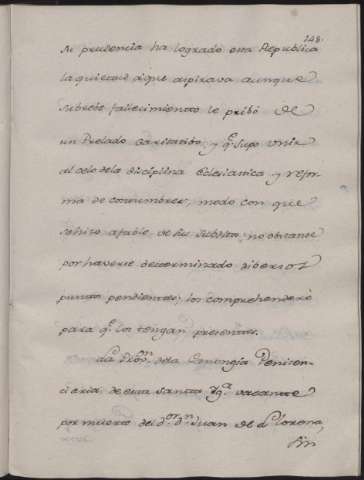 148.
su prudencia ha logrado esta Republica
la quietud à que aspirava aunque
su breve fallecimiento le pribó de
un Prelado caritatibo, y qe. supo vnir
al celo de la disciplina Eclesiastica y refor-
ma de costumbres, modo con que
se hizo afable de sus subditos, no obstante
por haverse determinado dibersos
puntos pendientes, los comprehenderè
para qe. los tengan presentes.
La Probn. de la Canongia Peniten-
ciaria de esta Santa Yga. vacante
por muerte del Dor. Dn. Juan de Llorena,
sin